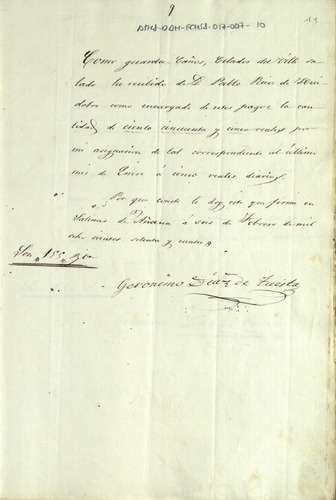 9
ATHA-DAH-FCHSA-017-007-10
11
Como guarda Caños, Celador del Valle Sa-
lado he recibido de D. Pablo Ruiz de
dobro como encargado de estos pagos, la can-
tidad de ciento cincuenta y cinco reales por
mi asignacion de las correspondiente al último
mes de Enero á cinco reales diarios.
Por que conste lo doy este que firmo en
Salinas de Añana á seis de Febrero de mil
ocho cientos setenta y cuatro
Son 155 rs
Geronimo Diaz de Tuesta